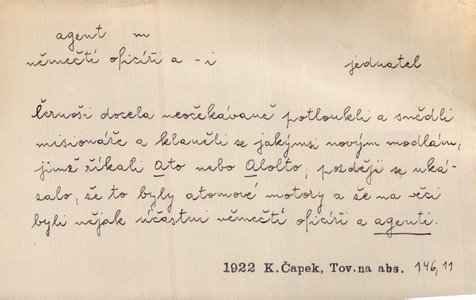 agent m
němečtí oficíři a -i jednatel
Černoši docela neočekávaně potloukli a snědli
misionáře a klaněli se jakýmsi novým modlám,
jimž říkali Ato nebo Alolto; později se uká-
zalo, že to byly atomové motory a že na věci
byli nějak účastni němečtí oficíři a agenti.
1922 K.Čapek, Tov.na abs. 146,11